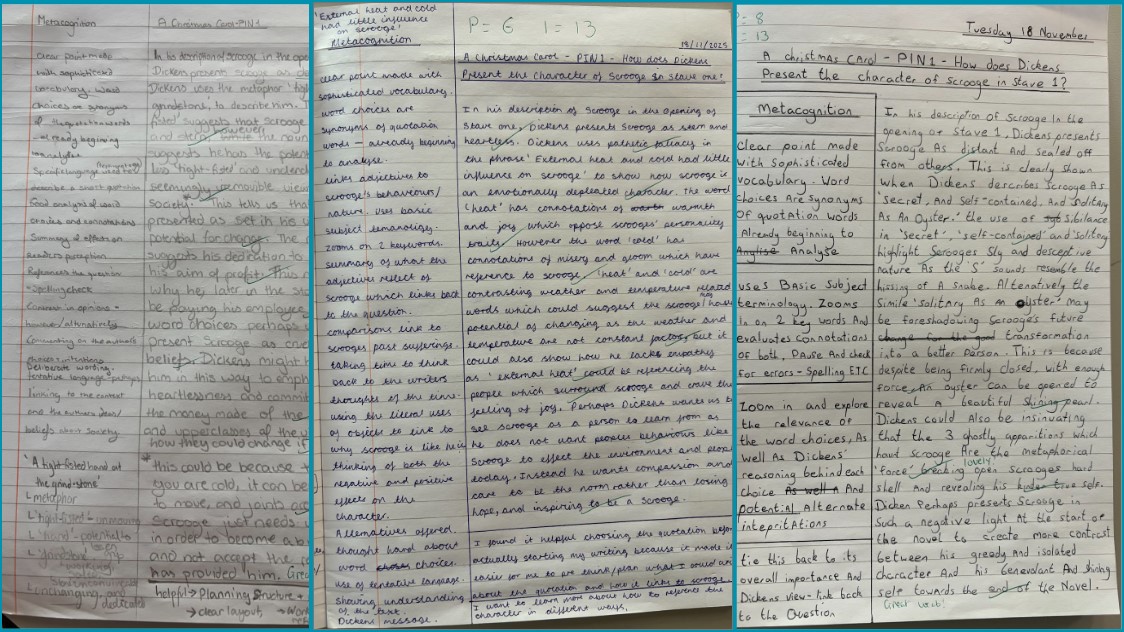 Metacognition
clear point made
with sophisticated
vocabulary. Word
choices = synonyms
of the quotation words
- already beginning
to analyse
Specific language used to
describe a short quotation
Good analysis of word
choices and connotations
Summary of effect on
Readers perception
References the question
Spelling check
Contrast in opinions
however/alternatively
Commenting on the authors
deliberate wording.
tentative language - perhaps
linking to the context
and the authors ideas/
beliefs about society
'A tight-fisted hand at
the grindstone'
↳ metaphor
A Christmas Carol - PIN1
In his description of Scrooge in the ope
Dickens presents Scrooge as
Dickens uses the metaphor 'tigh
grindstone', to describe him.
fisted' suggests that Scrooge
and stern, however
suggests he has the potent
less 'tight-fisted' and
seemingly removible view
Society. * This tells us tha
presented as set in his w
potential for change. The
suggests his dedication to
his aim of profit. This
why he, later in the sta
be paying his employee
word choices perhaps
present Scrooge as crue
beliefs. Dickens might h
him in this way to emph
heartlessness and commit
the money made of the
and upperclasses of the
how they could change if
* this could be because
you are cold, it can be
to move, and joints are
Scrooge just needs
in order to become a b
and not accept the
has provided him. Great
helpful → Planning Structure +
→ clear layout
'External heat and cold
had little influence
on scrooge'
P = 6 I = 13
Metacognition
clear point made with
sophisticated vocabulary.
word choices are
synonyms of quotation
words - already beginning
to analyse.
links adjectives to
scrooge's behaviours/
nature. Uses basic
subject terminology.
zooms on 2 keywords.
summary of what the
adjective reflect of
scrooge which links back
to the question.
comparisons link to
scrooges past sufferings.
taking time to think
back to the writers
thoughts of the time -
using the literal uses
of objects to link to
why scrooge is like he is
thinking of both the
negative and positive
effects on the
character.
Alternatives offered.
thought hard about
word choice.
use of tentative language.
Showing understanding
of the text.
Dickens message.
18/11/2025
A Christmas Carol - PIN1 - How does Dickens
Present the Character of Scrooge in Stave one?
In his description of Scrooge in the opening of
Stave one, Dickens presents Scrooge as stern and
heartless. Dickens uses pathetic fallacy in
the phrase 'External heat and cold had little
influence on scrooge' to show how scrooge is
an emotionally depleated character. The word
'heat' has connotations of warmth
and joy which oppose scrooges' personality
traits. However the word 'cold' has
connotations of misery and gloom which have
reference to scrooge. 'heat' and 'cold' are
contrasting weather and temperature related
words which could suggest the scrooge may have
potential of changing as the weather and
temperature are not constant factors, but it
could also show how he lacks empathy
as 'external heat' could be referencing the
people which surround scrooge and crave the
feeling of joy. Perhaps Dickens wants us to
see scrooge as a person to learn from as
he does not want peoples behaviours like
Scrooge to effect the environment and peopl
today. Instead he wants compassion and
care to be the norm rather than losing
hope, and inspiring to be a scrooge.
I found it helpful choosing the quotation before
actually starting my writing because it made it
easier for me to pre learn/plan what I could
about the quotation and how it links to scrooge.
I want to learn more about how to reference the
character in different ways,
= 8
= 13
Tuesday 18 November
A christmas Carol - PIN1 - How does Dickens
Present the character of Scrooge in Stave 1?
Metacognition
Clear point made
with Sophisticated
vocabulary. Word
choices Are synonyms
of quotation words
Already beginning to
Analyse
uses Basic Subject
terminology. Zooms
In on 2 key words And
evaluates connotations
of both, Pause And check
for errors - Spelling ETC
Zoom in and explore
the relevance of
the word choices, As
well As Dickens'
reasoning behind each
choice As well A And
potential Alternate
intepritAtions
tie this back to its
overall importance And
Dickens view - link back
to the Question
In his description of Scrooge In the
opening of Stave 1, Dickens presents
Scrooge As distant And Sealed off
from others. This is clearly shown
when Dickens describes Scrooge As
'Secret, And Self-contained, And Solitary
As An Oyster.' the use of sibilance
in 'Secret', 'self-contained' and 'Solitary'
highlight Scrooges Sly and desceptive
nature As the 'S' sounds resemble the
hissing of A snake. Altenatively the
Simile 'solitary As an oyster' may
be foreshadowing Scrooge's future
change for the good transformation
into a better person. This is because
despite being firmly closed, with enough
force, An oyster can be opened to
reveal a beautiful shining pearl.
Dickens could Also be insinuating
that the 3 ghostly apparitions which
haunt scrooge Are the metaphorical
'force' breaking open Scrooges hard
shell and revealing his kinder lovely true self.
Dicken Perhaps presents Scrooge in
Such a negative light At the start of
the novel to create more contrast
between his greedy and isolated
character And his benevolant And Shining
self towards the end of the Novel.
Great verb!